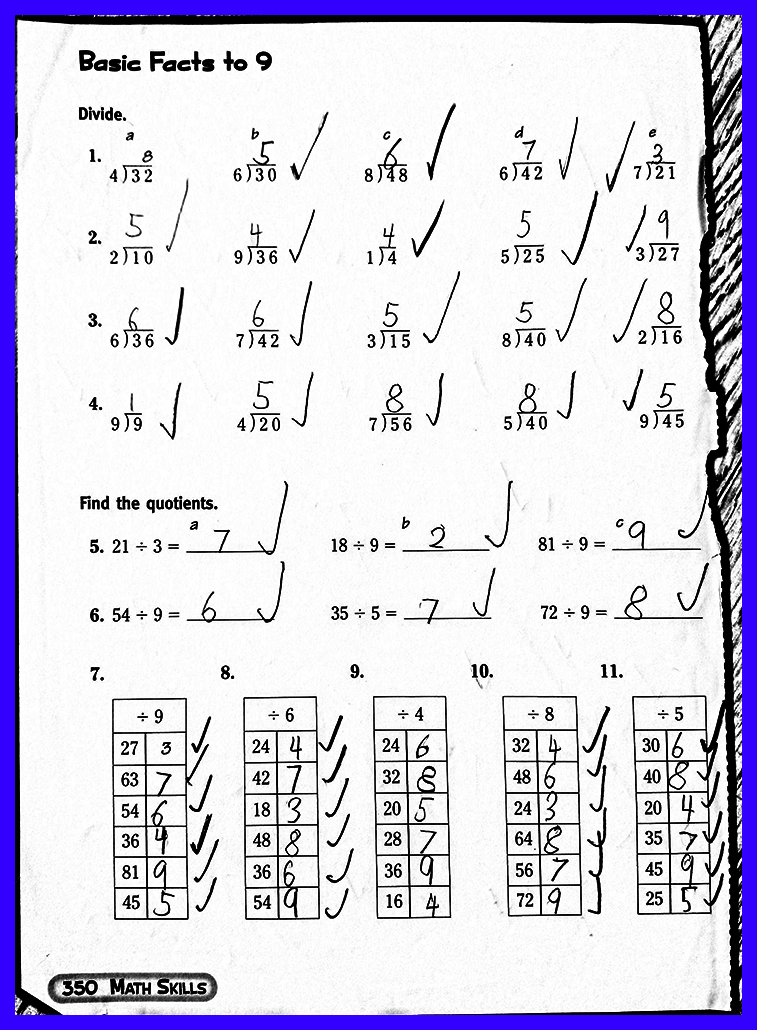 Basic Facts to 9
Divide.
a b c d e
8 5 6 7 3
1. 4)32 6)30 8)48 6)42 7)21
5 4 4 5 9
2. 2)10 9)36 1)4 5)25 3)27
6 6 5 5 8
3. 6)36 7)42 3)15 8)40 2)16
1 5 8 8 5
4. 9)9 4)20 7)56 5)40 9)45
Find the quotients.
a b c
5. 21 ÷ 3 = 7 18 ÷ 9 = 2 81 ÷ 9 = 9
6. 54 ÷ 9 = 6 35 ÷ 5 = 7 72 ÷ 9 = 8
7. 8. 9. 10. 11.
÷ 9 ÷ 6 ÷ 4 ÷ 8 ÷ 5
27 3 24 4 24 6 32 4 30 6
63 7 42 7 32 8 48 6 40 8
54 6 18 3 20 5 24 3 20 4
36 4 48 8 28 7 64 8 35 7
81 9 36 6 36 9 56 7 45 9
45 5 54 9 16 4 72 9 25 5
350 MATH SKILLS